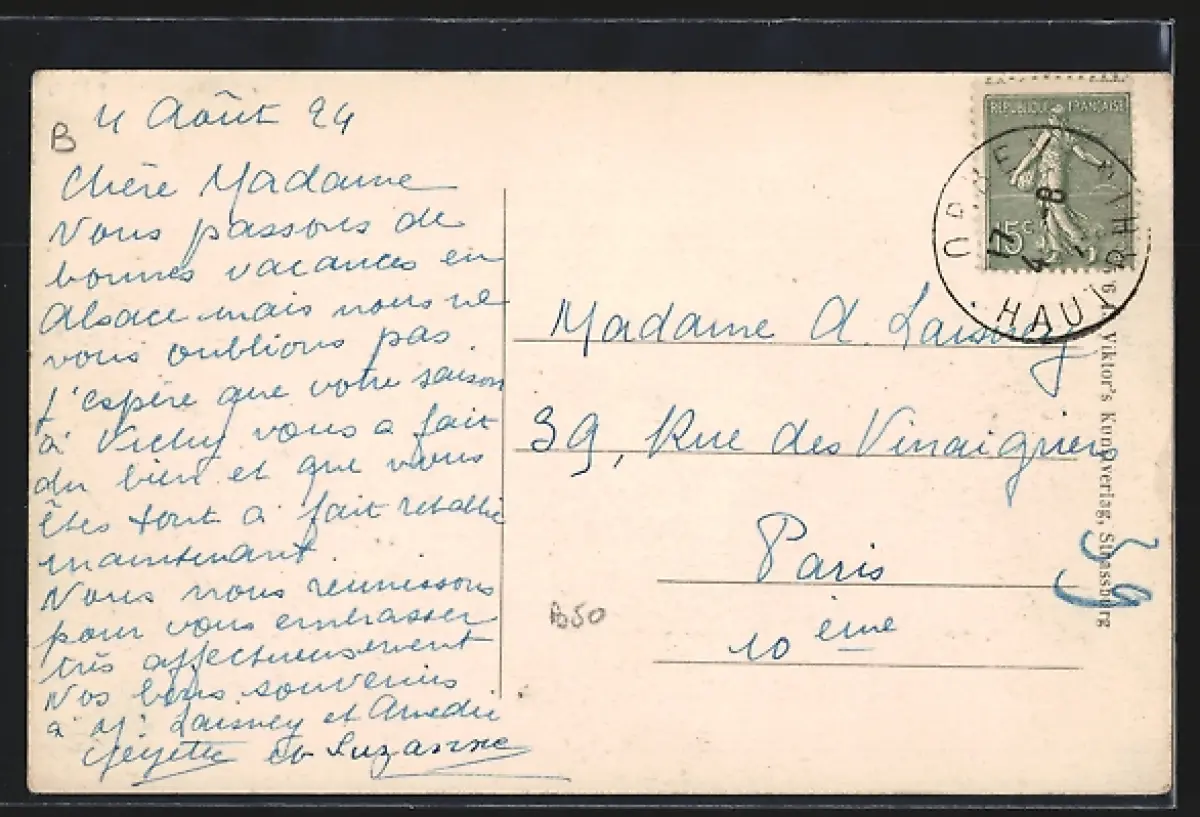 4 Août 24
B
Chère Madame
Nous passons de
bonnes vacances en
Alsace mais nous ne
vous oublions pas
J'espère que votre saison
à Vichy vous a fait
du bien et que vous
êtes tout à fait rétablie
maintenant.
Nous nous réunissons
pour vous embrasser
très affectueusement
Nos bons souvenirs
à Mr Laisney et Amédée
et Suzanne
REPUBLIQUE FRANÇAISE
15c
HAUT RH
Madame A. Laisney
39, Rue des Vinaigriers
Paris
10 ème
B50
39
Viktor's Kunstverlag, Strassburg